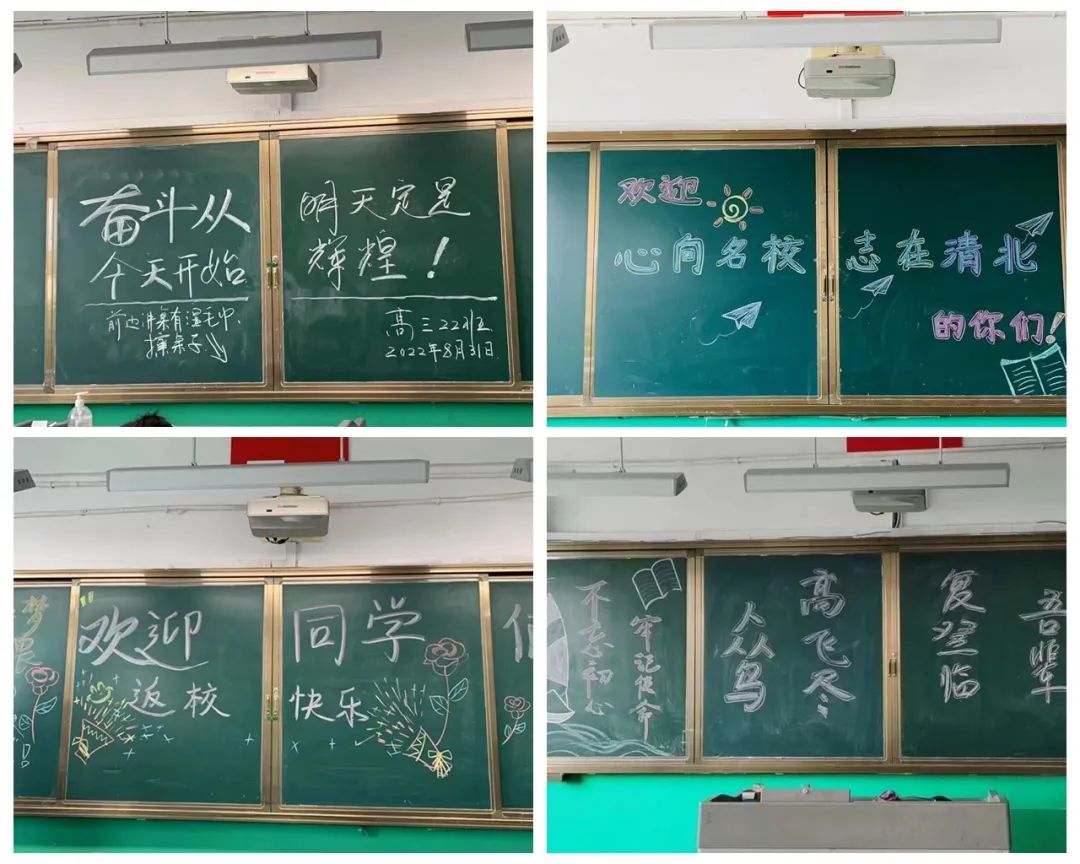 奋斗从
今天开始
前边讲桌有湿毛巾、
擦桌子
明天定是
辉煌！
高三22班
2022年8月31日
欢迎
心向名校 志在清北
的你们！
梦
欢迎 同学
返校 快乐
不忘初心
牢记使命
众鸟
高飞尽
复登临
吾辈